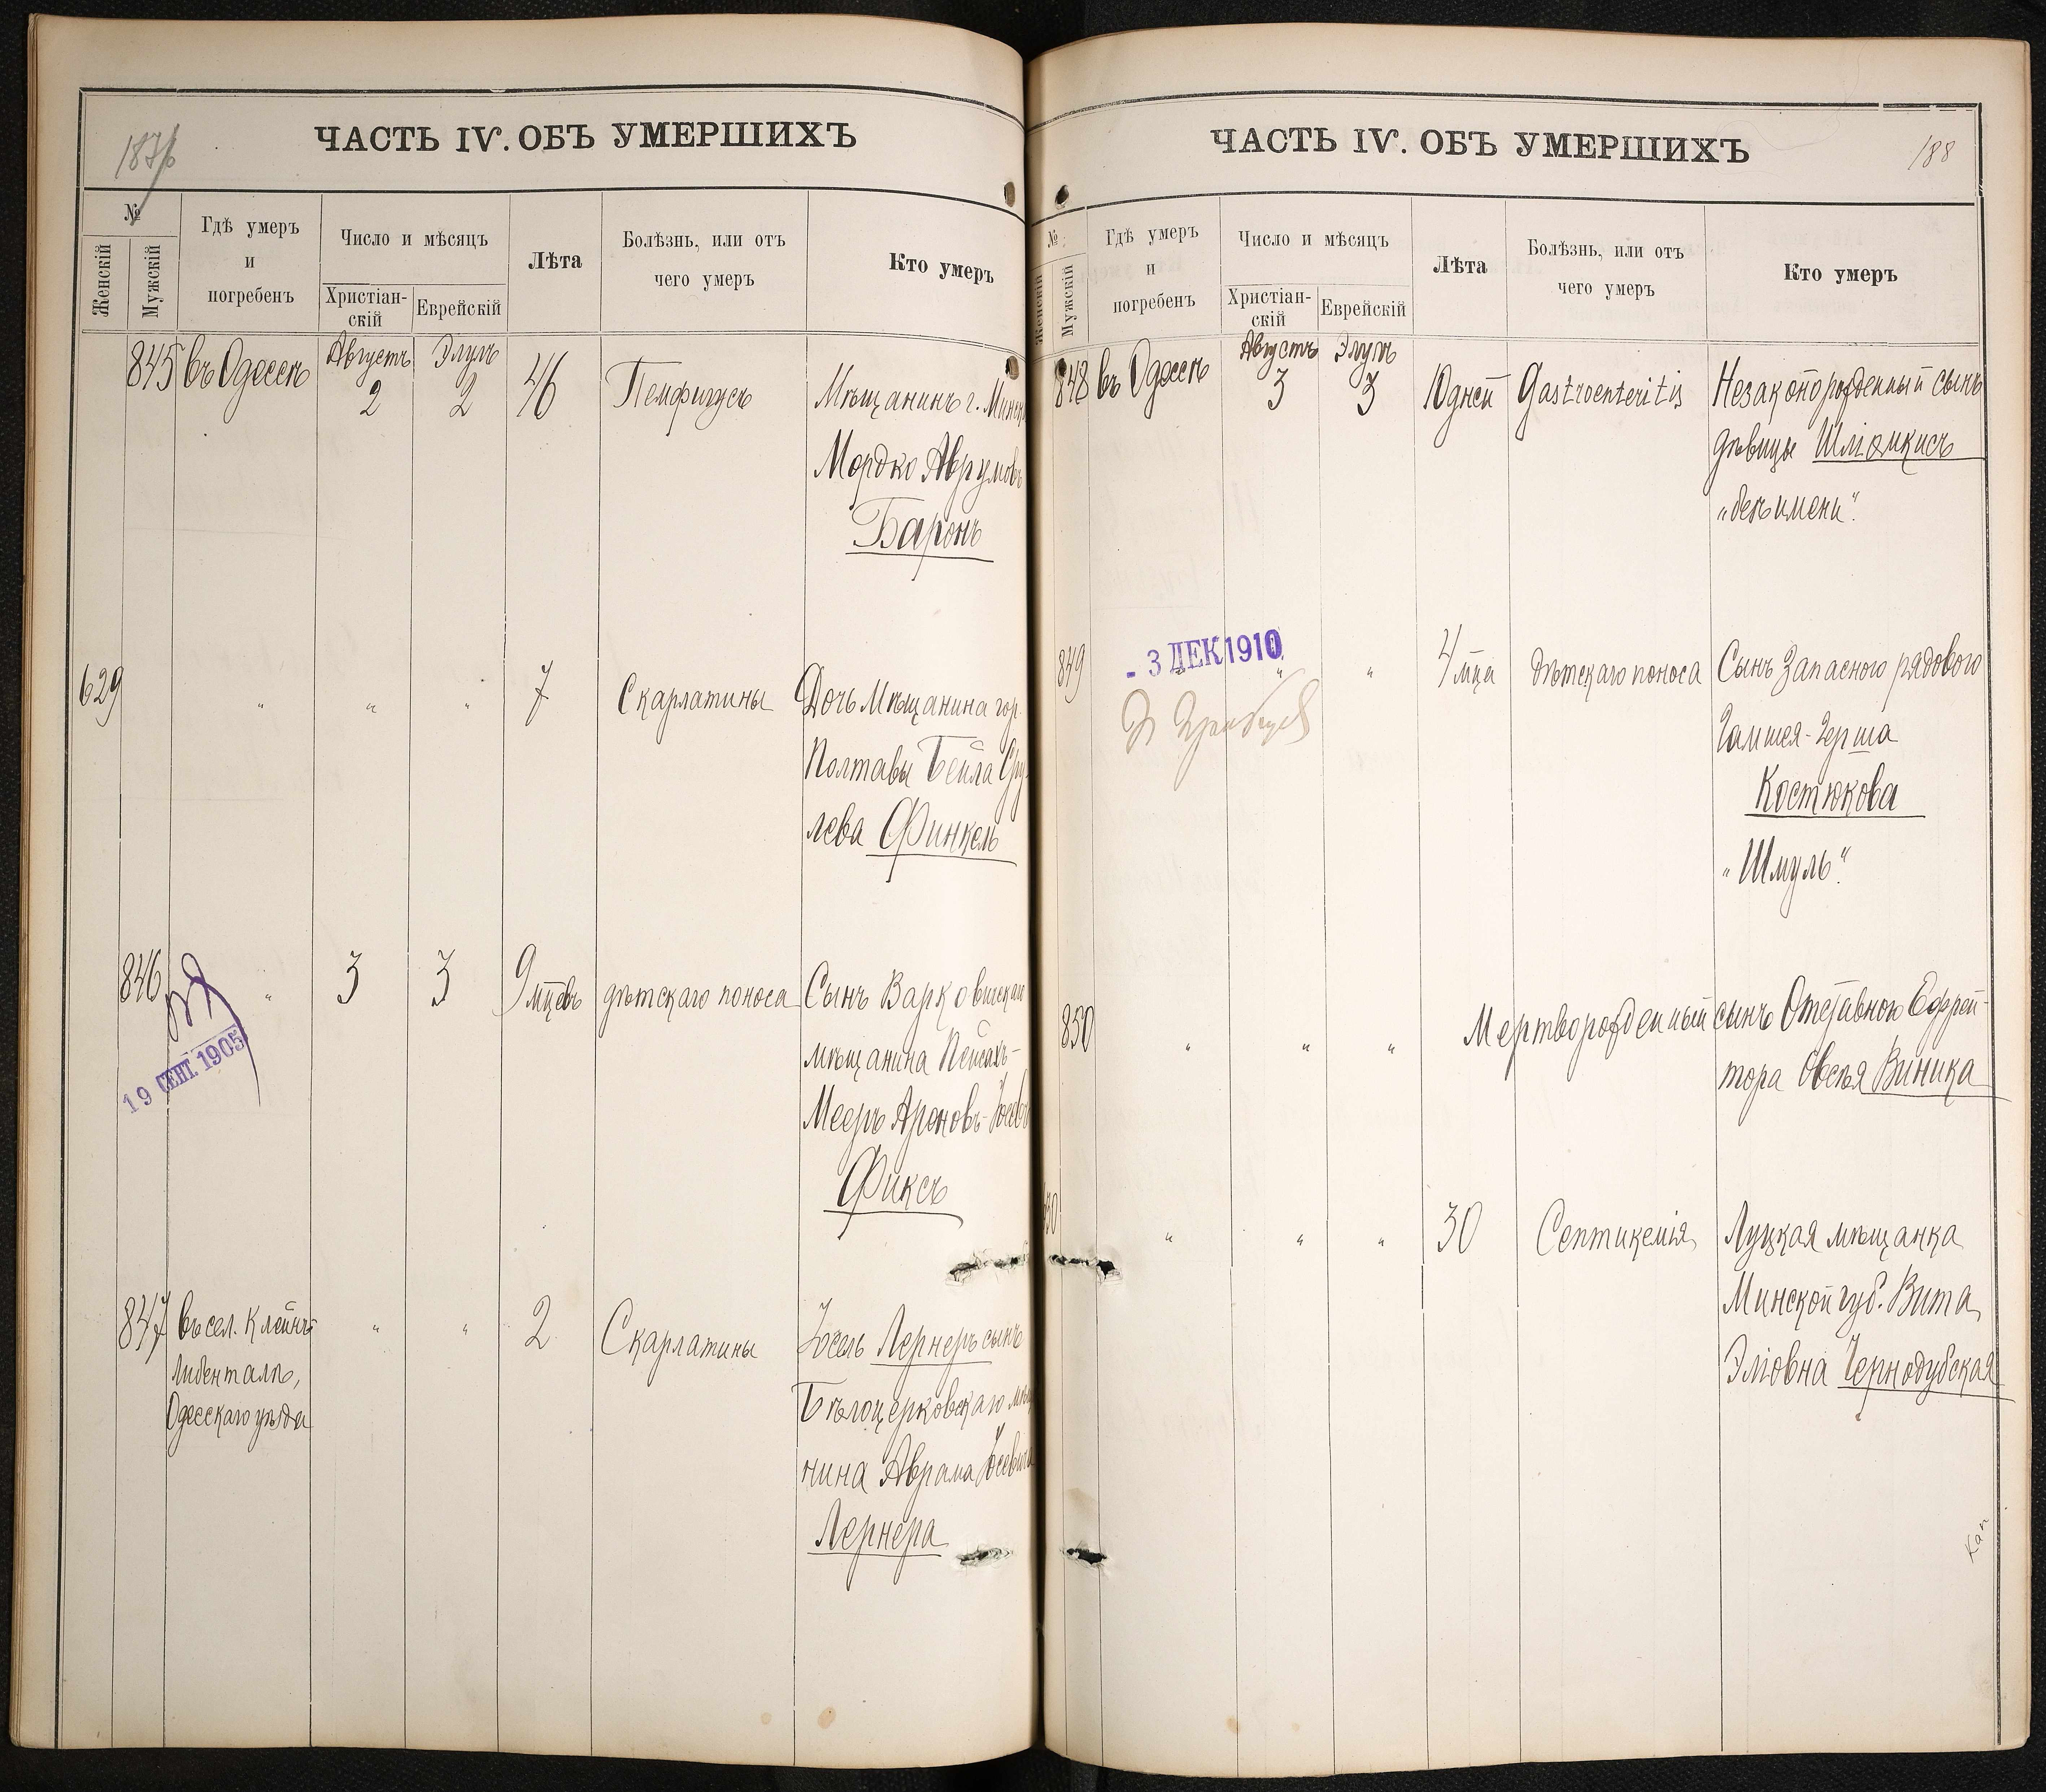 ЧАСТЬ IV. ОБЪ УМЕРШИХЪ
№
Женскій
Мужскій
Гдѣ умеръ
и
погребенъ
Число и мѣсяцъ
Христіан-
скій
Еврейскій
Лѣта
Болѣзнь, или отъ
чего умеръ
Кто умеръ
845 въ Одессѣ Августъ 2 Элулъ 2 46 Пемфигусъ Мѣщанинъ г.
Мордко Аврумовъ
Баронъ
629 " " " 7 Скарлатины Дочь Мѣщанина гор.
Полтавы Бейла Сру-
лева Финкель
846 " 3 3 9 мцевъ дѣтскаго поноса Сынъ Варковичскаго
мѣщанина Пейсахъ-
Мееръ Ароновъ-
Фиксъ
19 СЕНТ. 1905
847 въ сел. Клейнъ- " " 2 Скарлатины Іосель Лернеръ сынъ
Либенталь,
Одесскаго уѣзда
Бѣлоцерковскаго мѣща
нина Аврама
Лернера
ЧАСТЬ IV. ОБЪ УМЕРШИХЪ
188
№
Женскій
Мужскій
Гдѣ умеръ
и
погребенъ
Число и мѣсяцъ
Христіан-
скій
Еврейскій
Лѣта
Болѣзнь, или отъ
чего умеръ
Кто умеръ
848 въ Одессѣ Августъ 3 Элулъ 3 10 дней Gastroenteritis Незаконорожденный сынъ
дѣвицы Шліомкисъ
„безъ имени“.
- 3 ДЕК 1910
849 " " " 4 мца дѣтскаго поноса Сынъ Запасного рядового
Гамшея-Герша
Костюкова
„Шмуль“.
850 " " " Мертворожденный сынъ Отставного Ефрей-
тора Овсѣя Виника
630 " " " 30 Септикемія Луцкая мѣщанка
Минской губ. Вита
Эліовна Чернодубская
Кап